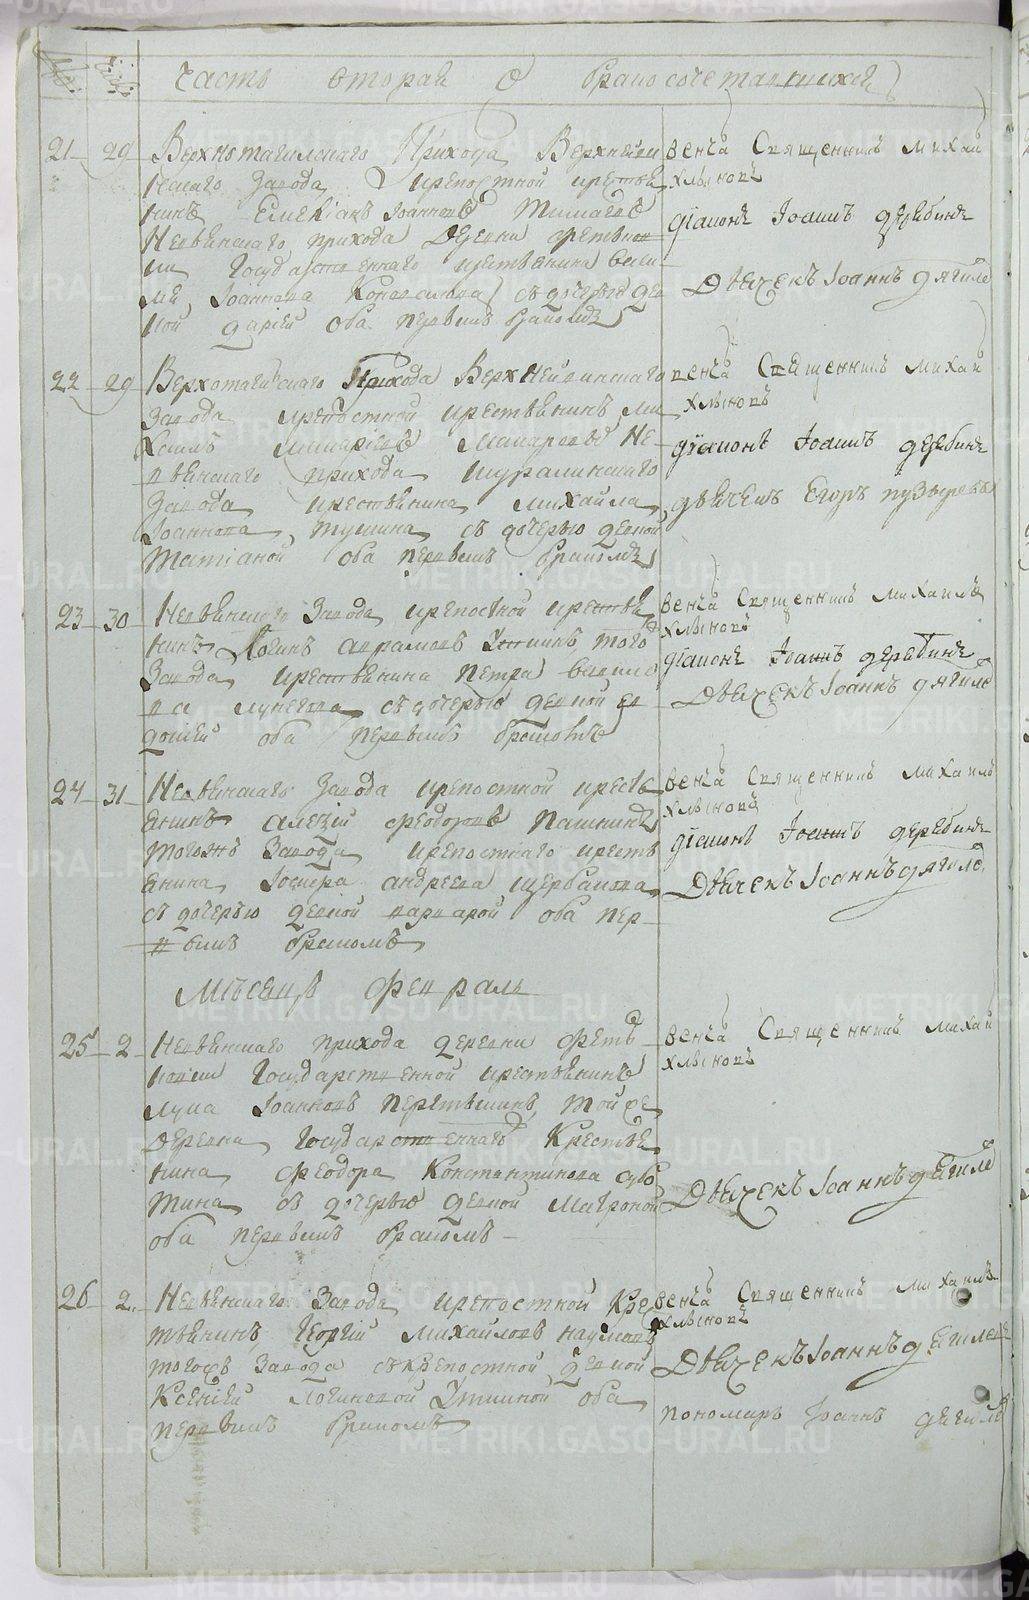 часть вторая о бракосочетавшихся
21 29 Верхнотагилскаго Прихода Верхнейви
нскаго завода крепостной крестья
нинъ Емелїанъ Іоанновъ
Невьянскаго прихода Деревни
ки Государственнаго крестьянина васи
лїя Іоаннова съ дочерью де
вкой дарїей оба первымъ бракомъ
венча Священникъ михаи
хлыновъ
дїаконъ Іоаннъ дерябинъ
Дьячекъ Іоаннъ дягиле
22 29 Верхотагилскаго Прихода Верхнейвинскаго
завода крепостной крестьянинъ ми
хаилъ макаровъ Не
вьянскаго прихода шуралинскаго
завода крестьянина михайла
Іоаннова тушина съ дочерью девкой
татїаной оба первымъ бракомъ
венча Священникъ михаи
хлыновъ
дїаконъ Іоаннъ дерябинъ
дьячекъ Егоръ пузыревъ
23 30 Невьянскаго завода крепостной крестья
нинъ Логинъ авраамовъ Уткинъ того
завода крестьянина петра
съ дочерью девкой ев
докїей оба первымъ бракомъ
венча Священникъ михаилъ
хлыновъ
дїаконъ Іоаннъ дерябинъ
Дьячекъ Іоаннъ дягиле
24 31 Невьянскаго завода крепостной кресть
янинъ алезїй феодоровъ пашкинъ
тогожъ завода крепостнаго кресть
янина Іосифа андреева щербакова
съ дочерью девкой варварой оба пер
вымъ бракомъ
венча Священникъ михаилъ
хлыновъ
дїаконъ Іоаннъ дерябинъ
Дьячекъ Іоаннъ дягиле
Мѣсецъ февраль
25 2 Невьянскаго прихода деревни
Государственной крестьянинъ
лука Іоанновъ тойже
деревни Государственнаго Крестья
нина феодора Константинова
съ дочерью девкой Мавроной
оба первымъ бракомъ
венча Священникъ михаи
хлыновъ
Дьячекъ Іоаннъ дягиле
26 2 Невьянскаго завода крепостной Кре
стьянинъ Георгїй михайловъ наумовъ
тогожъ завода съ крепостной девкой
Ксенїей логиновой Уткиной оба
первымъ бракомъ
венча Священникъ михаилъ
хлыновъ
Дьячекъ Іоаннъ дягилевъ
пономарь Іоаннъ дягиле
METRIKI.GASO-URAL.RU